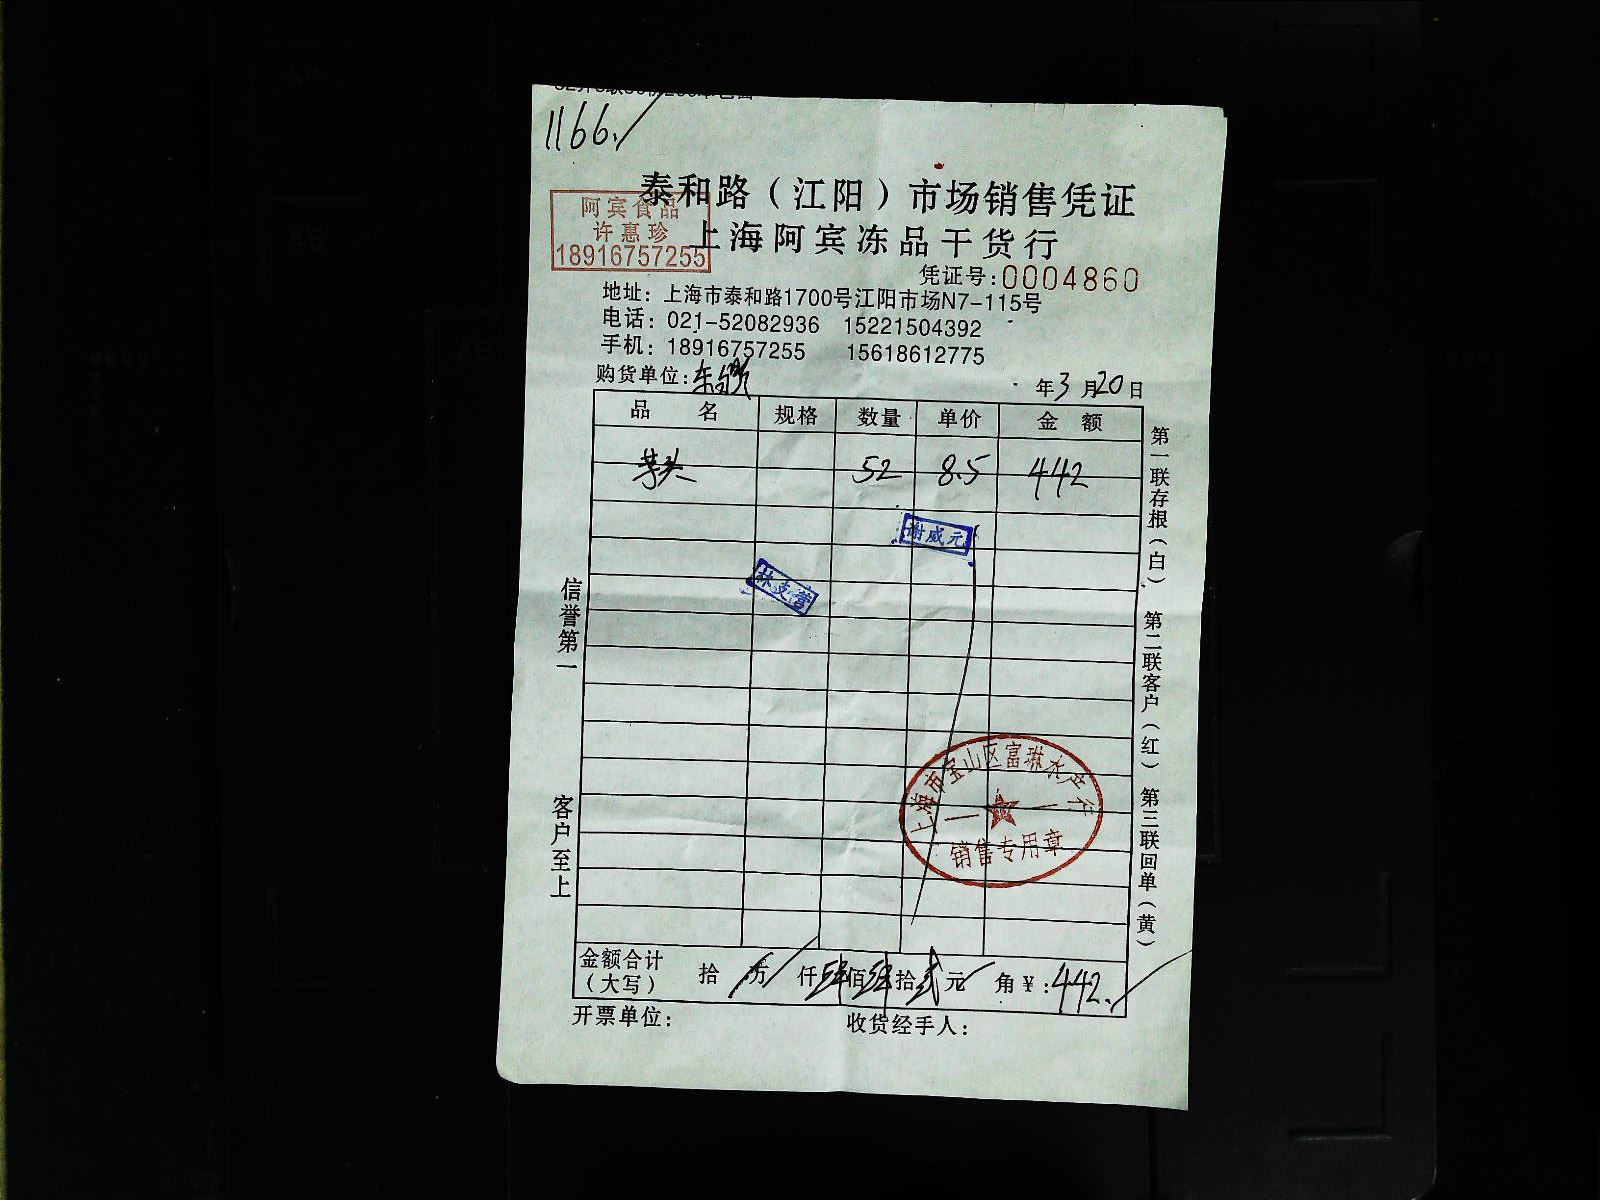 1166.
泰和路（江阳）市场销售凭证
阿宾食品
许惠珍
18916757255
上海阿宾冻品干货行
凭证号:0004860
地址：上海市泰和路1700号江阳市场N7-115号
电话：021-52082936 15221504392
手机：18916757255 15618612775
购货单位: 年3月20日
品名 规格 数量 单价 金额
芋头 52 8.5 442
谢威元
信誉第一
客户至上
第一联存根（白） 第二联客户（红） 第三联回单（黄）
上海市宝山区富琳水产行
销售专用章
金额合计（大写） 拾万仟肆佰肆拾贰元角￥:442.
开票单位: 收货经手人: